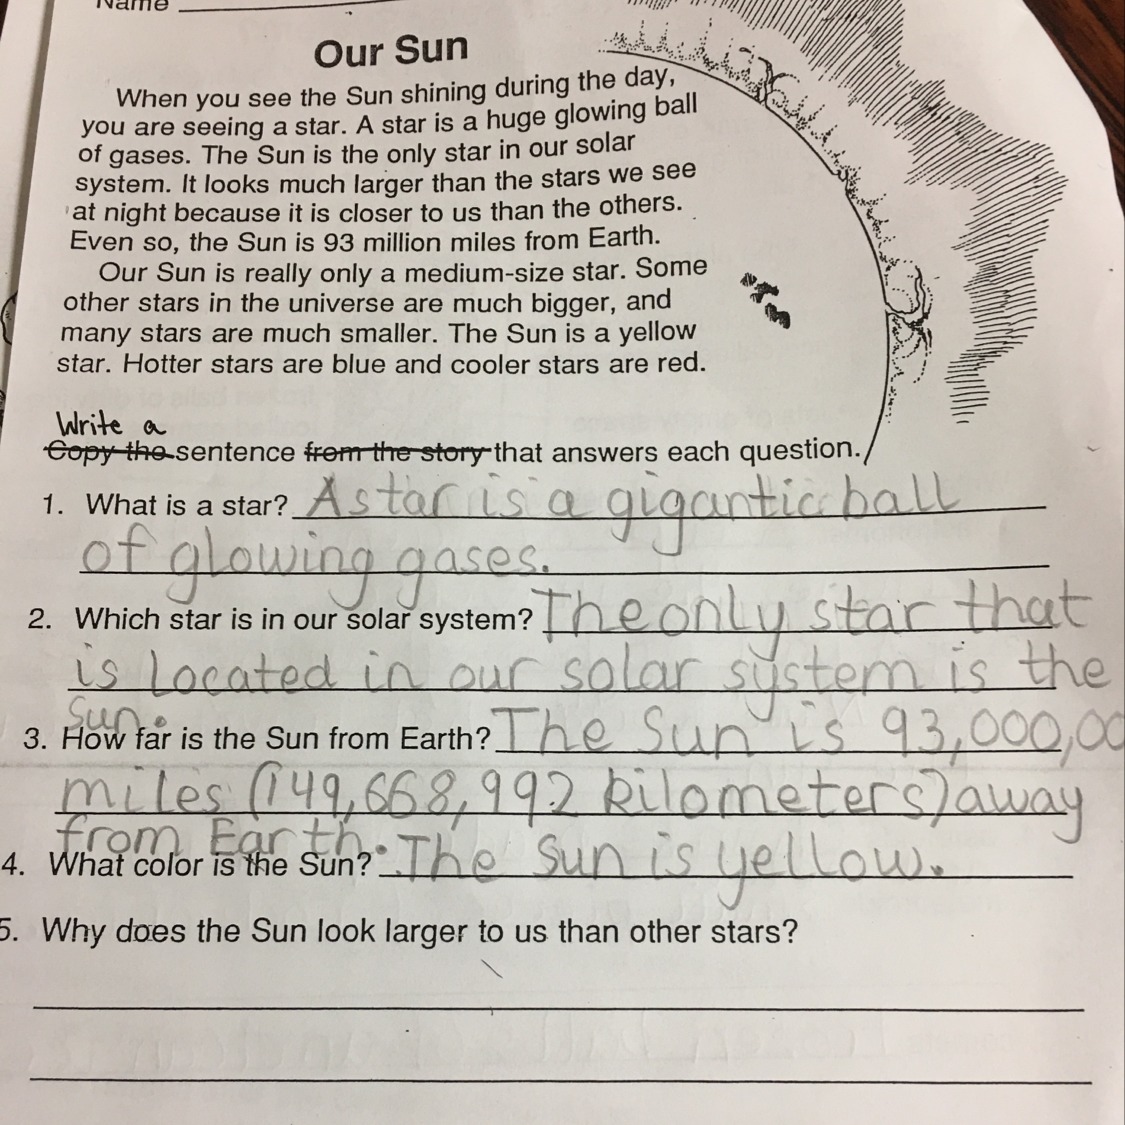 Name
Our Sun
When you see the Sun shining during the day,
you are seeing a star. A star is a huge glowing ball
of gases. The Sun is the only star in our solar
system. It looks much larger than the stars we see
at night because it is closer to us than the others.
Even so, the Sun is 93 million miles from Earth.
Our Sun is really only a medium-size star. Some
other stars in the universe are much bigger, and
many stars are much smaller. The Sun is a yellow
star. Hotter stars are blue and cooler stars are red.
Write a
Copy the sentence from the story that answers each question.
1. What is a star? A star is a gigantic ball
of glowing gases.
2. Which star is in our solar system? The only star that
is located in our solar system is the
Sun.
3. How far is the Sun from Earth? The Sun is 93,000,00
miles (149,668,992 kilometers) away
from Earth.
4. What color is the Sun? The Sun is yellow.
5. Why does the Sun look larger to us than other stars?